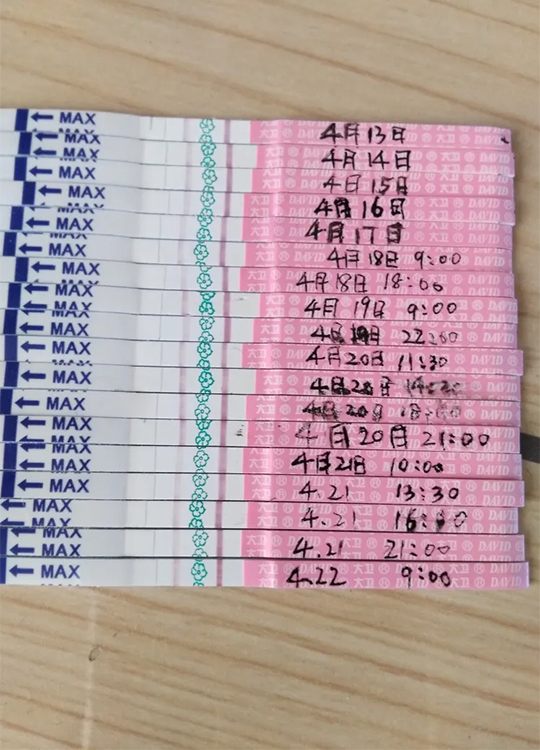 ← MAX 4月13日
← MAX 4月14日
← MAX 4月15日
← MAX 4月16日
← MAX 4月17日
← MAX 4月18日 9:00
← MAX 4月18日 18:00
← MAX 4月19日 9:00
← MAX 4月19日 22:00
← MAX 4月20日 11:30
← MAX 4月20日
← MAX 4月20日
← MAX 4月20日 21:00
← MAX 4月21日 10:00
← MAX 4.21 13:30
← MAX 4.21 16:00
← MAX 4.21 21:00
← MAX 4.22 9:00
大卫 ® DAVID